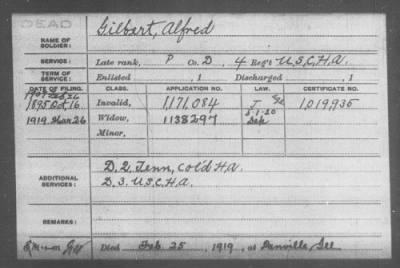 DEAD
NAME OF SOLDIER: Gilbert, Alfred
SERVICE: Late rank, P Co. D, 4 Reg't U.S.C.H.A.
TERM OF SERVICE: Enlisted , 1 Discharged , 1
DATE OF FILING. CLASS. APPLICATION NO. LAW. CERTIFICATE NO.
1895 Oct 16 Invalid, 1,171,084 1,019,935
1919 Mar 26 Widow, 1138297
Minor,
ADDITIONAL SERVICES: D. 2. Tenn, Col'd H.A.
D. 3. U.S.C.H.A.
REMARKS:
Died Feb 25, 1919, at Danville, Ill